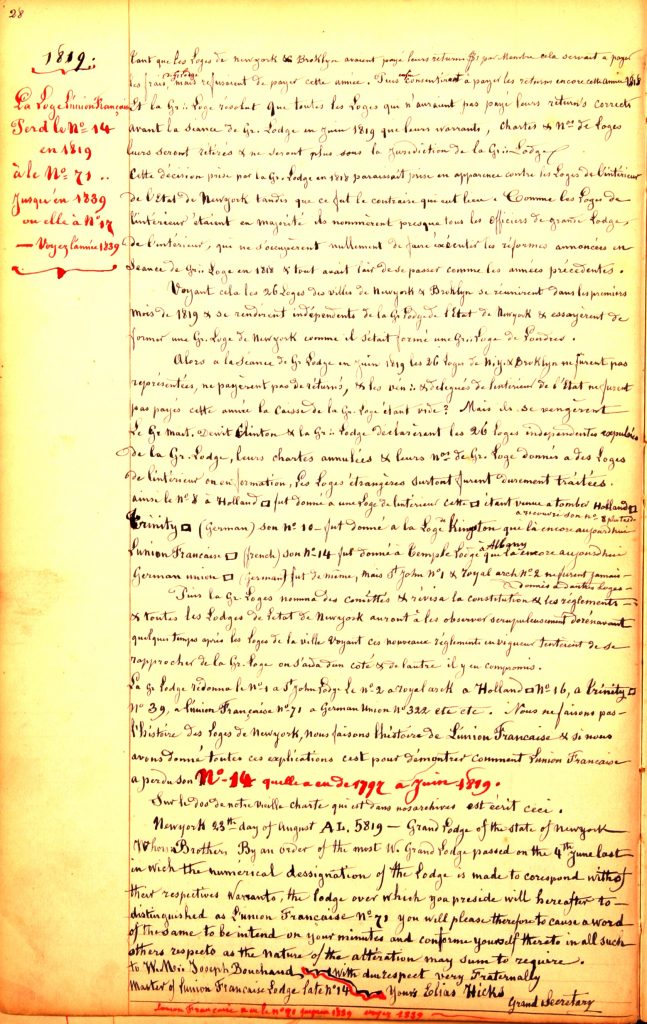 28
1819:
La Loge L'union Française
Perd le No 14
en 1819
à le No 71..
Jusqu'en 1839
ou elle à No 17
— Voyez l'année 1839
tant que les Loges de Newyork & Broklyn avaient payé leurs returns par Membre cela servait a payer
les frais de Gr Lodge, mais refusaient de payer cette année. Puis consentirent à payer les returns encore cette année 1818
Et la Gr∴ Loge resolut que toutes les Loges qui n'auraient pas payé leurs returns correct
avant la séance de Gr. Lodge en Juin 1819 que leurs warrants, chartes & Nos de loges
leurs seront retirés & ne seront plus sous la Juridiction de la Gr∴ Lodge
Cette décision prise par la Gr. Lodge en 1818 paraissait prise en apparence contre les Loges de l'intérieur
de l'Etat de Newyork tandis que ce fut le contraire qui eut lieu. Comme les Loges de
l'intérieur étaient en majorité ils nommèrent presque tous les officiers de grande Lodge
de l'intérieur, qui ne s'occupèrent nullement de faire exécuter les réformes annoncées en
Séance de Gr∴ Loge en 1818 & tout avait l'air de se passer comme les années précédentes.
Voyant cela les 26 Loges des villes de Newyork & Broklyn se réunirent dans les premiers
mois de 1819 & se rendirent indépendents de la Gr. Lodge de l'Etat de Newyork & essayerent de
former une Gr. Loge de Newyork comme il s'était formé une Gr∴ Loge de Londres.
Alors a la Séance de Gr Lodge en Juin 1819 les 26 loges de N.Y. & Broklyn ne furent pas
représentées, ne payèrent pas de returns, & les vén∴ & délegués de l'intérieur de l'Etat ne furent
pas payés cette année la Caisse de la Gr. Loge étant vide? Mais ils se vengèrent
Le Gr Mast. Dewit Clinton & la Gr∴ Lodge déclarèrent les 26 loges indépendentes expulsées
de la Gr. Lodge, leurs chartes annulées & leurs Nos de Gr. Loge donnés a des Loges
de l'intérieur ou en formation, Les Loges étrangères surtout furent durement traitées.
ainsi le No 8 à Holland □ fut donné a une Loge de l'intérieur cette □ étant venue a tomber Holland □
a recouvré son No 8 plus tard
Trinity □ (German) son No 10 – fut donné a la Loge à Kingston que l'a encore aujourd'hui
L'union Française □ (french) son No 14 fut donné à Temple Lodge à Albany qui l'a encore aujourd'hui
German union □ (german) fut de même, Mais St John No 1 & royal arch No 2 ne furent jamais
donnés a d'autres Loges –
Puis la Gr Loges nomma des comittés & révisa la constitution & les réglements –
& toutes les Lodges de l'état de Newyork auront à les observer scrupuleusement dorénavant
quelques temps après les loges de la ville voyant ces nouveaux réglements en vigueur tentèrent de se
rapprocher de la Gr. Loge on s'aida d'un coté & de l'autre il y eu compromis.
La Gr Lodge redonne le No 1 a St John Lodge le No 2 a royal arch a Holland □ No 16, a Trinity □
No 39, a L'union Française No 71 a German Union No 322 etc etc. Nous ne faisons pas
l'histoire des Loges de Newyork, nous faisons l'histoire de L'union Francaise & si nous
avons donné toutes ces explications c'est pour démontrer comment L'union Francaise
a perdu son No 14 qu'elle a eu de 1797 a Juin 1819.
Sur le dos de notre vieille charte qui est dans nos archives est écrit ceci.
Newyork 23th day of August A.L. 5819 – Grand Lodge of the state of Newyork
Brothers By an order of the most W. Grand Lodge passed on the 4th June last
in wich the numerical dessignation of the lodge is made to corespond with of
their respectives warrants, the lodge over which you preside will hereafter to –
distinguished as L'union Française No 71 you will please therefore to cause a word
of the same to be intend on your minutes and conforme yourself thereto in all such
others respects as the nature of the altération may sum to require.
to W. M∴ Joseph Bouchaud with due respect very Fraternally
Master of L'union Francaise Lodge late No 14 Yours Elias Hicks
Grand Secretary
L'union Francaise a eu le No 71 jusqu'en 1839 voyez 1839